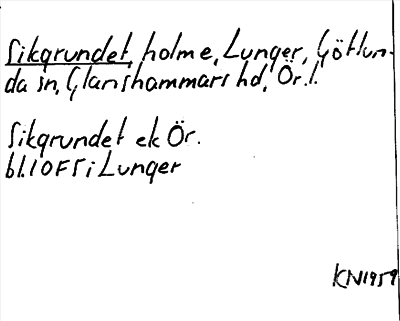 Sikgrundet, holme, Lunger, Götlun-
da sn, Glanshammars hd, Ör. l.
Sikgrundet ek Ör.
bl. 10 F 5 i Lunger
KN 1959